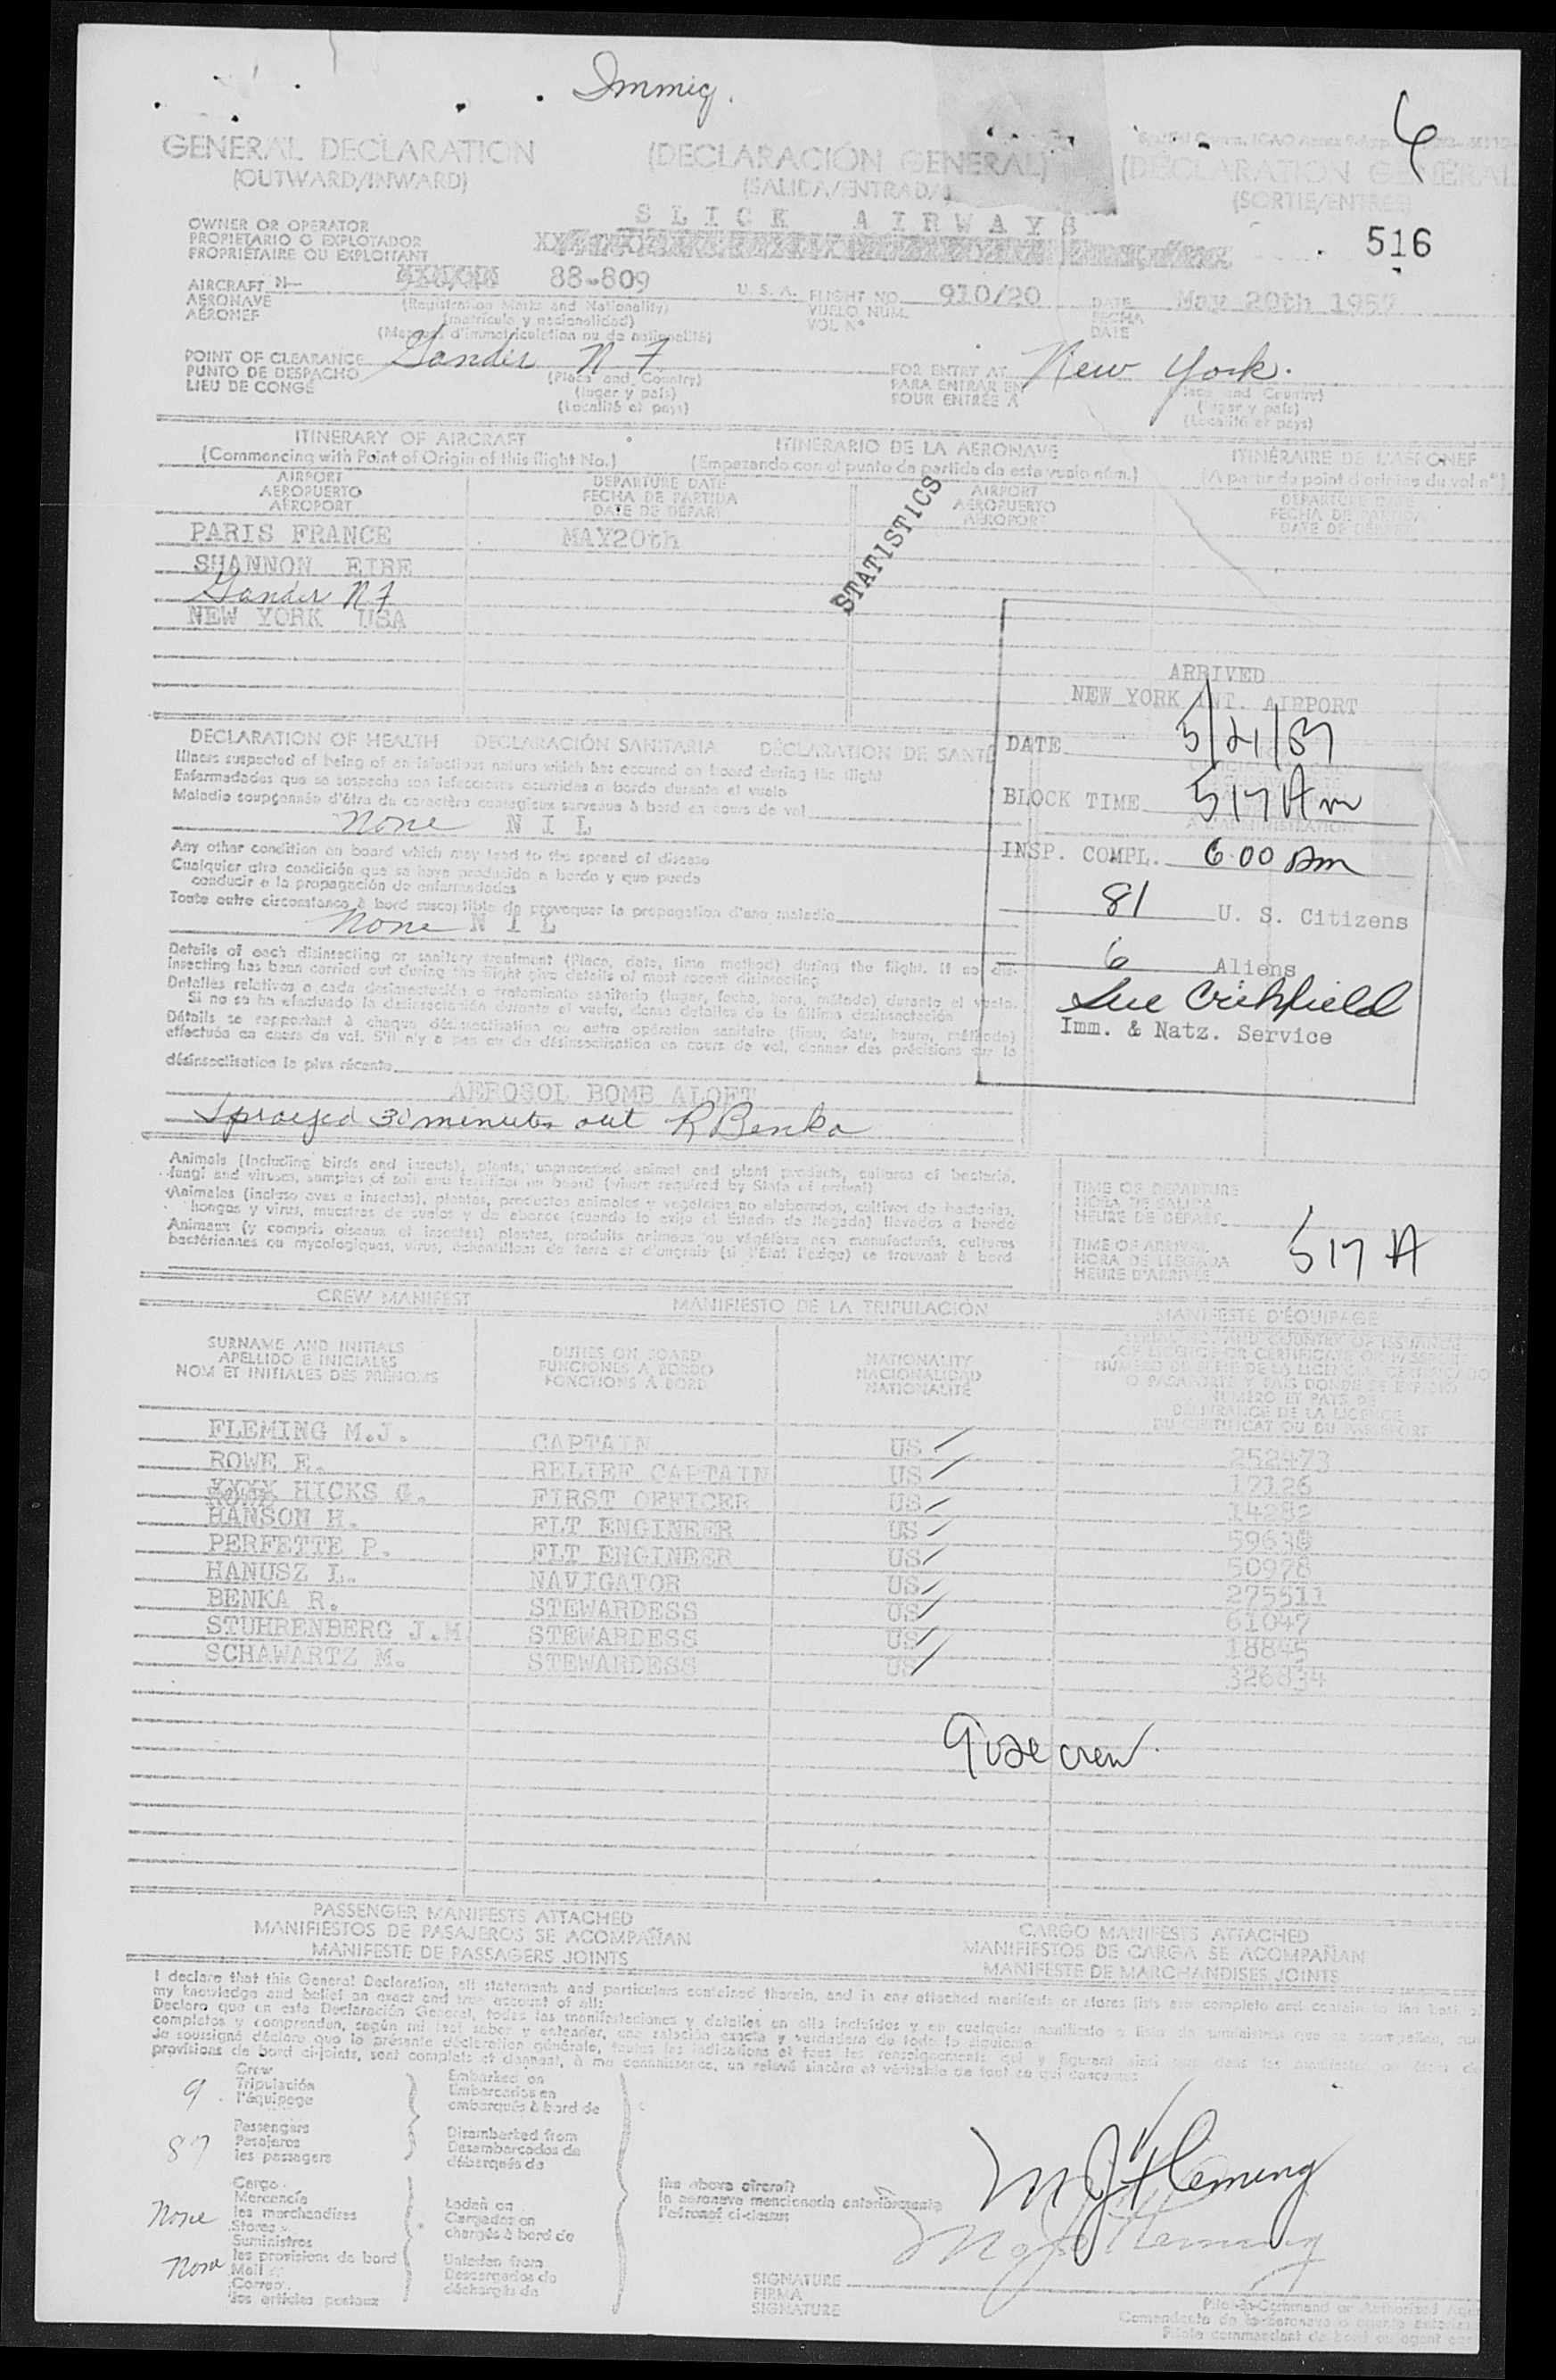 Immig.
6
GENERAL DECLARATION (DECLARACIÓN GENERAL) (DÉCLARATION GENERAL
(OUTWARD/INWARD) (SALIDA/ENTRADA) (SORTIE/ENTRÉE)
SLICK AIRWAYS
OWNER OR OPERATOR
PROPIETARIO O EXPLOTADOR
PROPRIÉTAIRE OU EXPLOITANT
516
AIRCRAFT N- 88-809 U. S. A. FLIGHT NO. 910/20 DATE May 20th 1957
AERONAVE VUELO NUM. FECHA
AÉRONEF VOL Nº DATE
(Registration Marks and Nationality)
(matrícula y nacionalidad)
(Marques d'immatriculation ou de nationalité)
POINT OF CLEARANCE Gander N F FOR ENTRY AT New York.
PUNTO DE DESPACHO PARA ENTRAR EN
LIEU DE CONGÉ POUR ENTRÉE À
(Place and Country) (Place and Country)
(lugar y país) (lugar y país)
(Localité et pays) (Localité et pays)
ITINERARY OF AIRCRAFT ITINERARIO DE LA AERONAVE ITINÉRAIRE DE L'AÉRONEF
(Commencing with Point of Origin of this flight No.) (Empezando con el punto de partida de este vuelo núm.) (A partir du point d'origine du vol nº)
AIRPORT DEPARTURE DATE AIRPORT
AEROPUERTO FECHA DE PARTIDA AEROPUERTO FECHA DE PARTIDA
AÉROPORT DATE DE DÉPART AÉROPORT DATE DE DÉPART
STATISTICS
PARIS FRANCE MAY20th
SHANNON EIRE
Gander N F
NEW YORK USA
ARRIVED
NEW YORK INT. AIRPORT
DATE 5/21/57
BLOCK TIME 517 Am
INSP. COMPL. 6 00 Am
81 U. S. Citizens
6 Aliens
Sue Crihfield
Imm. & Natz. Service
DECLARATION OF HEALTH DECLARACIÓN SANITARIA DÉCLARATION DE SANTÉ
Illness suspected of being of an infectious nature which has occured on board during the flight
Enfermedades que se sospecha son infecciosas ocurridas a bordo durante el vuelo
Maladie soupçonnée d'être de caractère contagieux survenue à bord en cours de vol
none N I L
Any other condition on board which may lead to the spread of disease
Cualquier otra condición que se haya producido a bordo y que pueda
conducir a la propagación de enfermedades
Toute autre circonstance à bord susceptible de provoquer la propagation d'une maladie
none N I L
Details of each disinsecting or sanitary treatment (Place, date, time method) during the flight. If no dis-
insecting has been carried out during the flight give details of most recent disinsecting
Detalles relativos a cada desinsectación o tratamiento sanitario (lugar, fecha, hora, método) durante el vuelo.
Si no se ha efectuado la desinsectación durante el vuelo, dense detalles de la última desinsectación
Détails se rapportant à chaque désinsectisation ou autre opération sanitaire (lieu, date, heure, méthode)
effectuée en cours de vol. S'il n'y a pas eu de désinsectisation en cours de vol, donner des précisions sur la
désinsectisation la plus récente
AEROSOL BOMB ALOFT
Sprayed 30 minutes out R Benka
Animals (including birds and insects), plants, unprocessed animal and plant products, cultures of bacteria,
fungi and viruses, samples of soil and fertilizer on board (where required by State of arrival)
Animales (incluso aves e insectos), plantas, productos animales y vegetales no elaborados, cultivos de bacterias,
hongos y virus, muestras de suelos y de abonos (cuando lo exija el Estado de llegada) llevados a bordo
Animaux (y compris oiseaux et insectes) plantes, produits animaux ou végétaux non manufacturés, cultures
bactériennes ou mycologiques, virus, échantillons de terre et d'engrais (si l'Etat l'exige) se trouvant à bord
TIME OF DEPARTURE
HORA DE SALIDA
HEURE DE DÉPART
TIME OF ARRIVAL
HORA DE LLEGADA 517 A
HEURE D'ARRIVÉE
CREW MANIFEST MANIFIESTO DE LA TRIPULACIÓN MANIFESTE D'ÉQUIPAGE
SURNAME AND INITIALS DUTIES ON BOARD NATIONALITY
APELLIDO E INICIALES FUNCIONES A BORDO NACIONALIDAD
NOM ET INITIALES DES PRÉNOMS FONCTIONS À BORD NATIONALITÉ
FLEMING M.J. CAPTAIN US 252473
ROWE E. RELIEF CAPTAIN US 17126
HICKS G. FIRST OFFICER US 14292
HANSON H. FLT ENGINEER US
PERFETTE P. FLT ENGINEER US 50978
HANUSZ L. NAVIGATOR US 275511
BENKA R. STEWARDESS US 61047
STUHRENBERG J.M STEWARDESS US 18845
SCHAWARTZ M. STEWARDESS US 326834
9 use crew
PASSENGER MANIFESTS ATTACHED CARGO MANIFESTS ATTACHED
MANIFIESTOS DE PASAJEROS SE ACOMPAÑAN MANIFIESTOS DE CARGA SE ACOMPAÑAN
MANIFESTE DE PASSAGERS JOINTS MANIFESTE DE MARCHANDISES JOINTS
I declare that this General Declaration, all statements and particulars contained therein, and in any attached manifests or stores lists are complete and contain to the best of
my knowledge and belief an exact and true account of all:
Declaro que en esta Declaración General, todas las manifestaciones y detalles en ella incluidos y en cualquier manifiesto o lista de suministros que se acompañan, son
completos y comprenden, según mi leal saber y entender, una relación exacta y verdadera de todo lo siguiente:
Je soussigné déclare que la présente déclaration générale, toutes les indications et tous les renseignements qui y figurent ainsi que dans les manifestes ou états de
provisions de bord ci-joints, sont complets et donnent, à ma connaissance, un relevé sincère et véritable de tout ce qui concerne:
9 Crew Embarked on
Tripulación Embarcados en
l'équipage embarqués à bord de
87 Passengers Disembarked from
Pasajeros Desembarcados de
les passagers débarqués de
Cargo
Mercancía Laden on
None les marchandises Cargados en
Stores chargés à bord de
Suministros
les provisions de bord Unladen from
None Mail Descargados de
Correo déchargés de
les articles postaux
the above aircraft
la aeronave mencionada anteriormente
l'aéronef ci-dessus
M J Fleming
M J Fleming
SIGNATURE
FIRMA
SIGNATURE
Pilot-in-Command or Authorized Age
Comandante de la aeronave o agente autoriza
Pilote commandant de bord ou agent